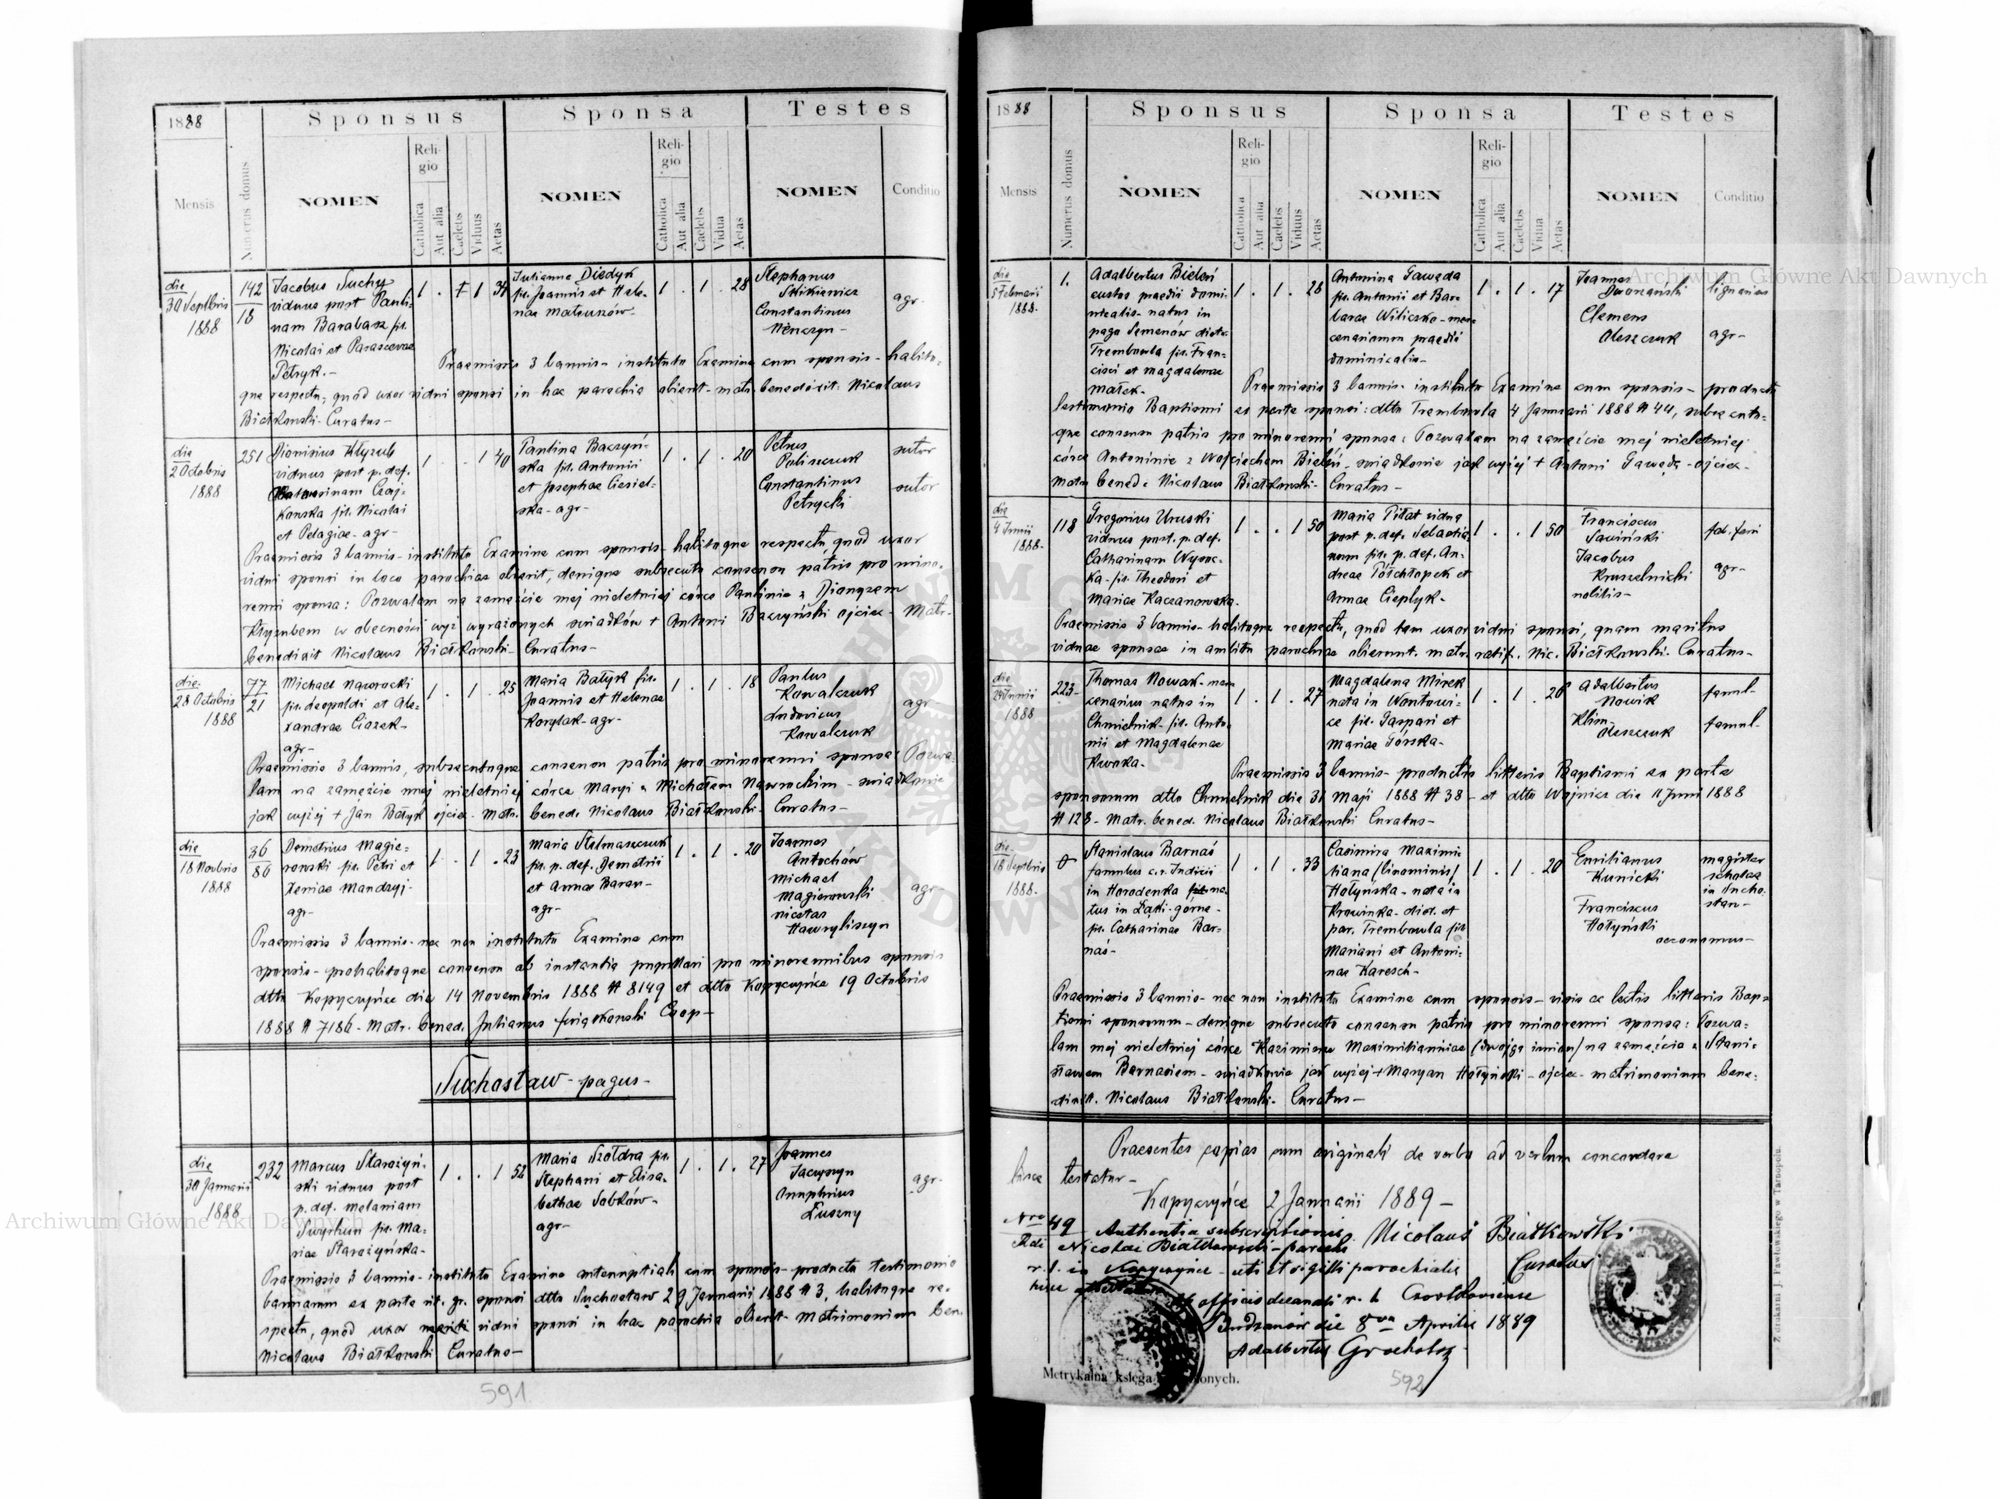 1888
Sponsus
Sponsa
Testes
Mensis
Numerus domus
NOMEN
Religio
Catholica
Aut alia
Caelebs
Viduus
Aetas
NOMEN
Religio
Catholica
Aut alia
Caelebs
Vidua
Aetas
NOMEN
Conditio
die
30 Septbris
1888
142
18
Jacobus Suchy
viduus post Pauli-
nam Barabasz fil.
Nicolai et Parascevae
Petryk. -
1 . 1 34
Julianna Diedyk
fil. Joannis et Hele-
nae
1 . 1 . 28
Stephanus
Constantinus
agr-
Praemissis 3 bannis- instituto Examine cum sponsis- habito-
que respectu, quod uxor vidui sponsi in hac parochia obierit- matr. benedixit. Nicolaus
Białkowski- Curatus-
die
2 Octobris
1888
251
Dionisius Kłyzub
viduus post p. def.
Catharinam Czaj-
kowska fil. Nicolai
et Pelagiae- agr-
1 . . 1 40
Paulina Baczyń-
ska fil. Antonii
et Josephae Ciesiel-
ska- agr-
1 . 1 . 20
Petrus
Poliszczuk
Constantinus
Petrycki
sutor
sutor
Praemissis 3 bannis- instituto Examine cum sponsis- habitoque respectu, quod uxor
vidui sponsi in loco parochiae obierit, denique subsecuto consensu patris pro mino-
renni sponsa: Pozwalam na zamęście mej nieletniej córce Paulinie z Dionyzem
Kłyzubem w obecności wyż wyrażonych świadków + Antoni Baczyński ojciec- Matr.
benedixit Nicolaus Białkowski- Curatus-
die
28 Octobris
1888
77
21
Michael Nawrocki
fil. Leopoldi et Ale-
xandrae Ciozek-
agr-
1 . 1 . 25
Maria Bałyk fil.
Joannis et Helenae
Korylak- agr-
1 . 1 . 18
Paulus
Kowalczuk
Ludovicus
Kowalczuk
agr-
Praemissis 3 bannis, subsecutoque consensu patris pro minorenni sponsa: Pozwa-
lam na zamęście mej nieletniej córce Maryi z Michałem Nawrockim- świadkowie
jak wyżej + Jan Bałyk ojciec- Matr. bened. Nicolaus Białkowski- Curatus-
die
18 Novbris
1888
36
86
Demetrius Magie-
rowski fil. Petri et
Xeniae Mandzyj-
agr-
1 . 1 . 23
Maria Stelmaszczuk
fil. p. def. Demetrii
et Annae Baran-
agr-
1 . 1 . 20
Joannes
Antochów
Michael
Magierowski
Nicolas
Hawryliszyn
agr
Praemissis 3 bannis- nec non instituto Examine cum
sponsis- prohabitoque consensu ab instantia pupillari pro minorennibus sponsis
dtto Kopyczyńce die 14 Novembris 1888 # 8149 et dtto Kopyczyńce 19 Octobris
1888 # 7186- Matr. bened. Julianus Coop-
Suchostaw- pagus-
die
30 Januarii
1888
232
Marcus Starożyń-
ski viduus post
p. def. Melaniam
fil. Ma-
riae Starożyńska-
1 . . 1 52
Maria Szoldra fil.
Stephani et Elisa-
bethae Sobków-
agr-
1 . 1 . 27
Joannes
Jacyszyn
Onuphrius
Łuszny
agr-
Praemissis 3 bannis- instituto Examine antenuptiali cum sponsis- producto testimonio
bannorum ex parte rit. gr. sponsi dtto Suchostaw 29 Januarii 1888 # 3, habitoque re-
spectu, quod uxor vidui sponsi in hac parochia obierit- Matrimonium ben.
Nicolaus Białkowski Curatus-
591
1888
Sponsus
Sponsa
Testes
Mensis
Numerus domus
NOMEN
Religio
Catholica
Aut alia
Caelebs
Viduus
Aetas
NOMEN
Religio
Catholica
Aut alia
Caelebs
Vidua
Aetas
NOMEN
Conditio
die
5 Februarii
1888-
1.
Adalbertus Bieleń
custos praedii domi-
nicalis- natus in
pago Semenów distr.
Trembowla fil. Fran-
cisci et Magdalenae
Małek-
1 . 1 . 28
Antonina Gawęda
fil. Antonii et Bar-
barae Wiliczko- mer-
cenariorum praedii
dominicalis-
1 . 1 . 17
Joannes
Dworzański
Clemens
Oleszczuk
lignarius
agr-
Praemissis 3 bannis- instituto Examine cum sponsis- producto
testimonio Baptismi ex parte sponsi: dtto Trembowla 4 Januarii 1888 # 44, subsecuto-
que consensu patris pro minorenni sponsa: Pozwalam na zamęście mej nieletniej
córce Antoninie z Wojciechem Bieleń- świadkowie jak wyżej + Antoni Gawęda- ojciec-
Matr. bened. Nicolaus Białkowski- Curatus-
die
4 Junii
1888-
118
Gregorius Uruski
viduus post. p. def.
Catharinam Wysoc-
ka- fil. Theodori et
Mariae Kaczanowska-
1 . . 1 50
Maria Piłat vidua
post p. def. Sebastia-
num fil. p. def. An-
dreae Półchłopek et
Annae Cieplyk-
1 . . 1 50
Franciscus
Sawiński
Jacobus
Kruszelnicki
nobilis-
agr-
Praemissis 3 bannis- habitoque respectu, quod tam uxor vidui sponsi, quam maritus
viduae sponsae in ambitu parochiae obierunt. matr. ratif. Nic. Białkowski. Curatus-
die
29 Junii
1888
223-
Thomas Nowak- mer-
cenarius natus in
Chmielnik- fil. Anto-
nii et Magdalenae
Kwoka-
1 . 1 . 27
Magdalena Mirek
nata in
ce fil. Gaspari et
Mariae Górska-
1 . 1 . 26
Adalbertus
Nowik
Klim
Oleszczuk
famul-
famul-
Praemissis 3 bannis- productis litteris Baptismi ex parte
sponsorum dtto Chmielnik die 31 Maji 1888 # 38- et dtto Wojnicz die 11 Junii 1888
# 123- Matr. bened. Nicolaus Białkowski Curatus-
die
18 Septbris
1888-
Stanislaus Barnaś
famulus c. r. Indicii
in Horodenka na-
tus in Łąki- górne-
fil. Catharinae Bar-
naś-
1 . 1 . 33
Casimira Maximi-
liana /binominis/
Hołyńska- nata in
Krowinka- dist. et
par. Trembowla fil.
Mariani et Antoni-
nae Karesch-
1 . 1 . 20
Emilianus
Kunicki
Franciscus
Hołyński
magister
scholae
in Sucho-
staw-
oeconomus-
Praemissis 3 bannis- nec non instituto Examine cum sponsis- visis ac lectis litteris Bap-
tismi sponsorum- denique subsecuto consensu patris pro minorenni sponsa: Pozwa-
lam mej nieletniej córce Kazimierze Maximiliannie /dwojga imion/ na zamęście z Stani-
sławem Barnasiem- świadkowie jak wyżej + Maryan Hołyński- ojciec- matrimonium bene-
dixit. Nicolaus Białkowski- Curatus-
Praesentes copias cum originali de verbo ad verbum concordare
hisce testatur-
Kopyczyńce 2 Januarii 1889-
Nicolaus Białkowski
Curatus
Nro 49
Authentia subscriptionis
Nicolai Białkowski- parochi
r. l. in Kopyczyńce- uti et sigilli parochialis
hisce
Ex officio decanali r. l. Czortkoviense
Budzanów die 8va Aprilis 1889
Adalbertus Grocholsz
Metrykalna księga
592
Z drukarni J. Pawłowskiego w Tarnopolu.
Archiwum Główne Akt Dawnych
Archiwum Główne Akt Dawnych
ARCHIWUM GŁÓWNE AKT DAWNYCH